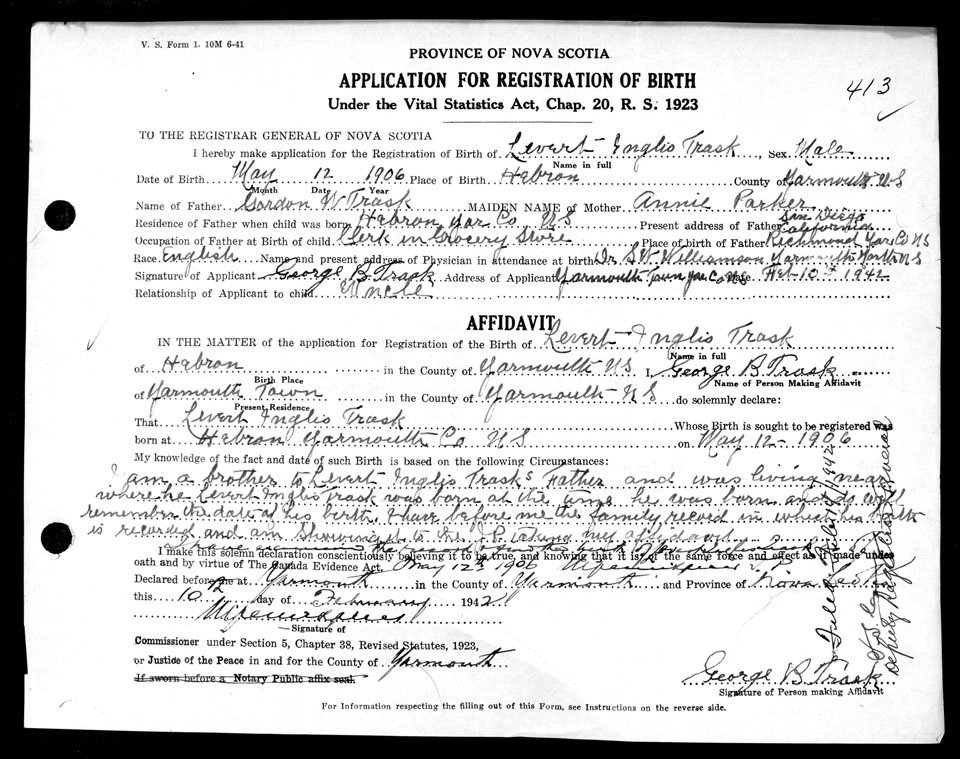 V. S. Form 1. 10M 6-41
PROVINCE OF NOVA SCOTIA
APPLICATION FOR REGISTRATION OF BIRTH
Under the Vital Statistics Act, Chap. 20, R. S. 1923
413
TO THE REGISTRAR GENERAL OF NOVA SCOTIA
I hereby make application for the Registration of Birth of Levert Inglis Trask, Sex Male
Name in full
Date of Birth May 12 1906. Place of Birth Hebron County of Yarmouth N S
Month Date Year
Name of Father Gordon W Trask MAIDEN NAME of Mother Annie Parker
Residence of Father when child was born Hebron Yar Co N S Present address of Father San Diego California
Occupation of Father at Birth of child Clerk in Grocery Store Place of Birth of Father Richmond Yar Co N S
Race English Name and present address of Physician in attendance at birth Dr S W Williamson Yarmouth North N S
Signature of Applicant George B. Trask Address of Applicant Yarmouth Town Yar Co N S Feb 10th 1942
Relationship of Applicant to child Uncle
AFFIDAVIT
IN THE MATTER of the application for Registration of the Birth of Levert Inglis Trask
Name in full
of Hebron in the County of Yarmouth N S I, George B Trask
Birth Place Name of Person Making Affidavit
of Yarmouth Town in the County of Yarmouth N S do solemnly declare:
Present Residence
That Levert Inglis Trask Whose Birth is sought to be registered was
born at Hebron Yarmouth Co N S on May 12 - 1906
My knowledge of the fact and date of such Birth is based on the following Circumstances:
I am a brother to Levert Inglis Trask's Father and was living near
where he Levert Inglis Trask was born at the time he was born and so well
remember the date of his birth. I have before me the family record in which his birth
is recorded and am showing it to the J.P. taking my affidavit
I make this solemn declaration conscientiously believing it to be true, and knowing that it is of the same force and effect as if made under
oath and by virtue of The Canada Evidence Act. May 12th 1906 J P
Declared before me at Yarmouth in the County of Yarmouth and Province of Nova Scotia
this 10th day of February 1942
Signature of
Commissioner under Section 5, Chapter 38, Revised Statutes, 1923,
or Justice of the Peace in and for the County of Yarmouth
If sworn before a Notary Public affix seal.
George B. Trask
Signature of Person making Affidavit
For Information respecting the filling out of this Form, see Instructions on the reverse side.
Filed Feb 19 / 1942
Deputy Registrar General